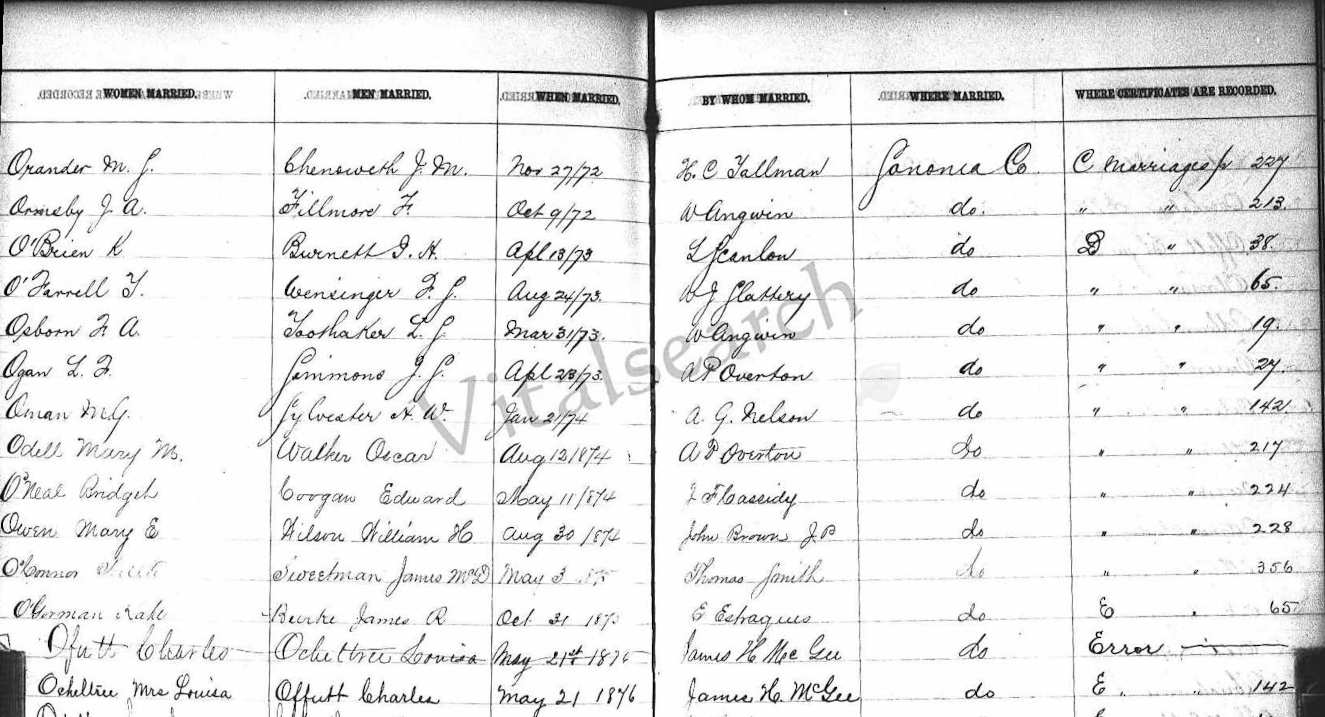 WOMEN MARRIED. MEN MARRIED. WHEN MARRIED. BY WHOM MARRIED. WHERE MARRIED. WHERE CERTIFICATES ARE RECORDED.
Orander M. G. Chenoweth J. M. Nov 27/72 H. C Tallman Sonoma Co C Marriages p 227
Ormsby J. A. Fillmore F. Oct 9/72 W Angwin do. " " 213
O'Brien K Burnett I. H. Apl 13/73 L Scanlon do D " 38.
O'Farrell T. Wensinger F. G. Aug 24/73. W J Slattery do " " 65.
Osborn F A. Toothaker L. G. Mar 31/73. W Angwin do " " 19.
Ogan L. F. Simmons J. G. Apl 23/73. A P Overton do " " 27.
Oman M. G. Sylvester H. W Jan 21/74 A. G. Nelson do " " 142
Odell Mary M. Walker Oscar Aug 12 1874 A P Overton do " " 217
O'Neal Bridget Coogan Edward May 11/874 J F Cassidy do " " 224
Owen Mary E Wilson William H Aug 30 1874 John Brown J. P do " " 228
O'Connor Sweetman James McD May 3 Thomas Smith do " " 356
O'Gorman Kate Burke James R Oct 31 1875 E Estragues do E " 65
Offutt Charles Ocheltree Louisa May 21st 1876 James H McGee do Error
Ocheltree Mrs Louisa Offutt Charles May 21 1876 James H. McGee do E " " 142
Vitalsearch